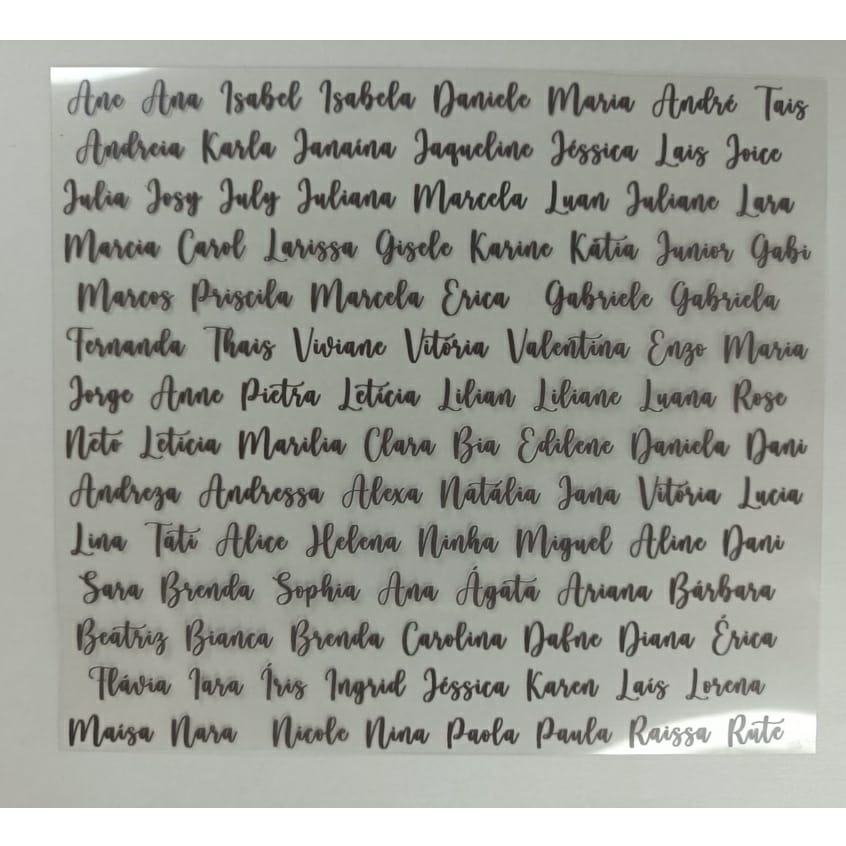 Ane Ana Isabel Isabela Daniele Maria André Tais
Andreia Karla Janaína Jaqueline Jéssica Lais Joice
Julia Josy July Juliana Marcela Luan Juliane Lara
Marcia Carol Larissa Gisele Karine Kátia Junior Gabi
Marcos Priscila Marcela Erica Gabriele Gabriela
Fernanda Thais Viviane Vitória Valentina Enzo Maria
Jorge Anne Pietra Letícia Lilian Liliane Luana Rose
Neto Leticia Marilia Clara Bia Edilene Daniela Dani
Andreza Andressa Alexa Natália Jana Vitória Lucia
Lina Tati Alice Helena Ninha Miguel Aline Dani
Sara Brenda Sophia Ana Ágata Ariana Bárbara
Beatriz Bianca Brenda Carolina Dafne Diana Érica
Flávia Iara Íris Ingrid Jéssica Karen Laís Lorena
Maísa Nara Nicole Nina Paola Paula Raissa Rute